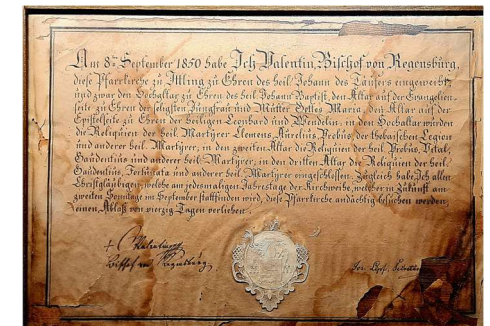 Am 8ten September 1850 habe Ich Valentin, Bischof von Regensburg,
diese Pfarrkirche zu Illing zu Ehren des heil. Johann des Täufers eingeweiht
und zwar den Hochaltar zu Ehren des heil. Johann Baptist, den Altar auf der Evangelien-
seite zu Ehren der seligsten Jungfrau und Mutter Gottes Maria, den Altar auf der
Epistelseite zu Ehren der heiligen Leonhard und Wendelin, in den Hochaltar wurden
die Reliquien der heil. Martyrer Clemens, Aurelius, Probus, der thebaischen Legion
und anderer heil. Martyrer, in den zweiten Altar die Reliquien der heil. Probus, Vital,
Gaudentius und anderer heil. Martyrer, in den dritten Altar die Reliquien der heil.
Gaudentius, Fortunata und anderer heil. Martyrer eingeschlossen. Zugleich habe Ich allen
Christgläubigen, welche am jedesmaligen Jahrestage der Kirchweihe, welcher in Zukunft am
zweiten Sonntage im September stattfinden wird, diese Pfarrkirche andächtig besuchen werden,
einen Ablaß von vierzig Tagen verliehen.
+ Valentin
Bischof von Regensburg
Jos. Lipf, Sekretär